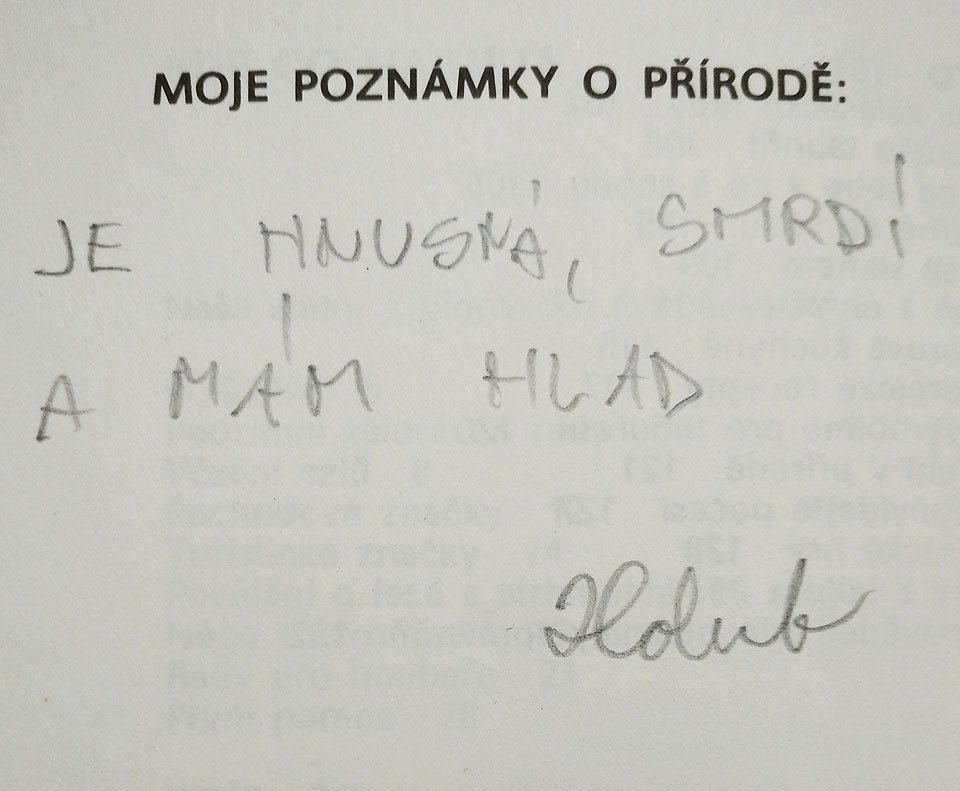 MOJE POZNÁMKY O PŘÍRODĚ:
JE HNUSNÁ, SMRDÍ
A MÁM HLAD
Holub